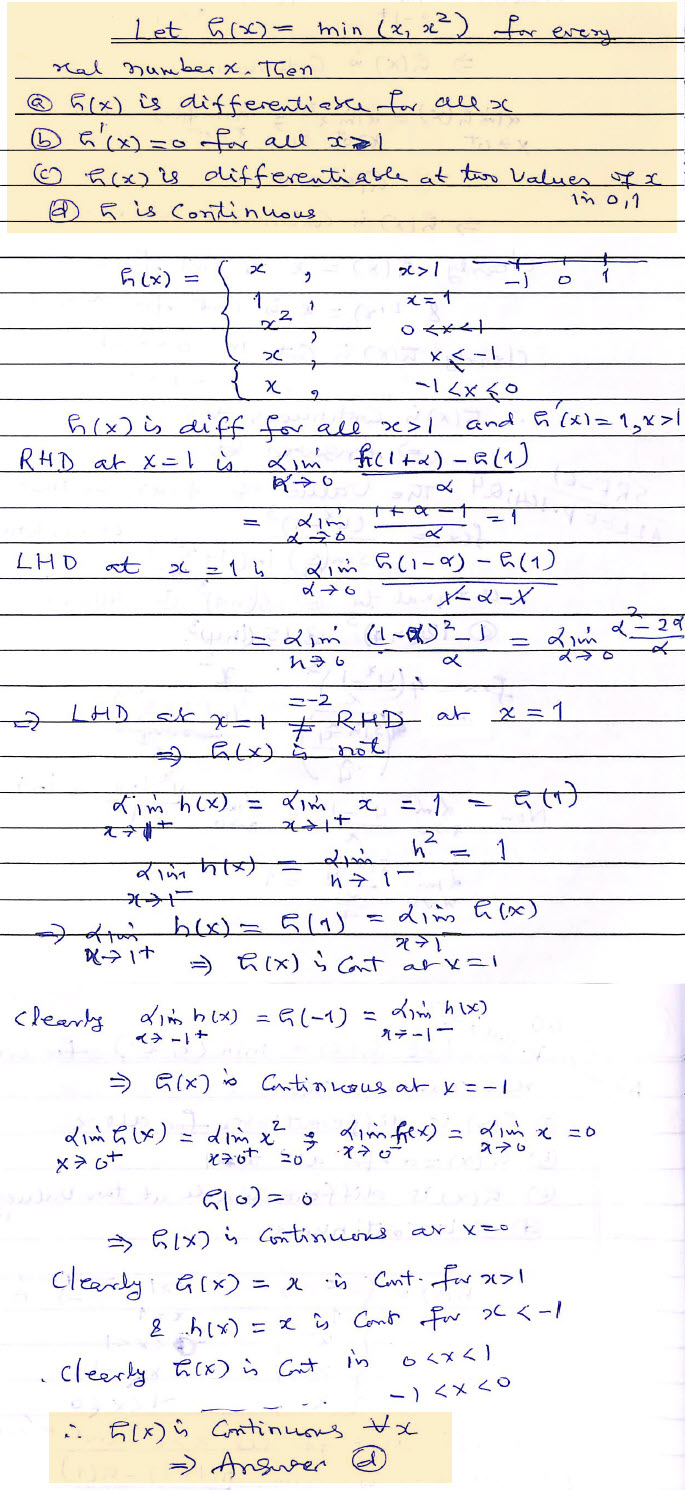 Let h(x) = min (x, x²) for every
real number x. Then
(a) h(x) is differentiable for all x
(b) h'(x) = 0 for all x > 1
(c) h(x) is differentiable at two values of x
in 0,1
(d) h is continuous
h(x) = { x , x > 1
-1 0 1
1 , x = 1
x² , 0 < x < 1
x , x ≤ -1
{ x , -1 < x ≤ 0
h(x) is diff for all x > 1 and h'(x) = 1, x > 1
RHD at x = 1 is Lim α→0 h(1+α) - h(1) / α
= Lim α→0 1 + α - 1 / α = 1
LHD at x = 1 is Lim α→0 h(1-α) - h(1) / 1 - α - 1
= Lim h→0 (1-α)² - 1 / α = Lim α→0 α² - 2α / α
= -2
⇒ LHD at x = 1 ≠ RHD at x = 1
⇒ h(x) is not
Lim x→1+ h(x) = Lim x→1+ x = 1 = h(1)
Lim x→1- h(x) = Lim h→1- h² = 1
⇒ Lim x→1+ h(x) = h(1) = Lim x→1- h(x)
⇒ h(x) is Cont at x = 1
Clearly Lim x→-1+ h(x) = h(-1) = Lim x→-1- h(x)
⇒ h(x) is Continuous at x = -1
Lim x→0+ h(x) = Lim x→0+ x² = 0 ; Lim x→0- h(x) = Lim x→0 x = 0
h(0) = 0
⇒ h(x) is Continuous at x = 0
Clearly h(x) = x is Cont. for x > 1
& h(x) = x is Cont for x < -1
. Clearly h(x) is Cont in 0 < x < 1
-1 < x < 0
∴ h(x) is Continuous ∀ x
⇒ Answer (d)